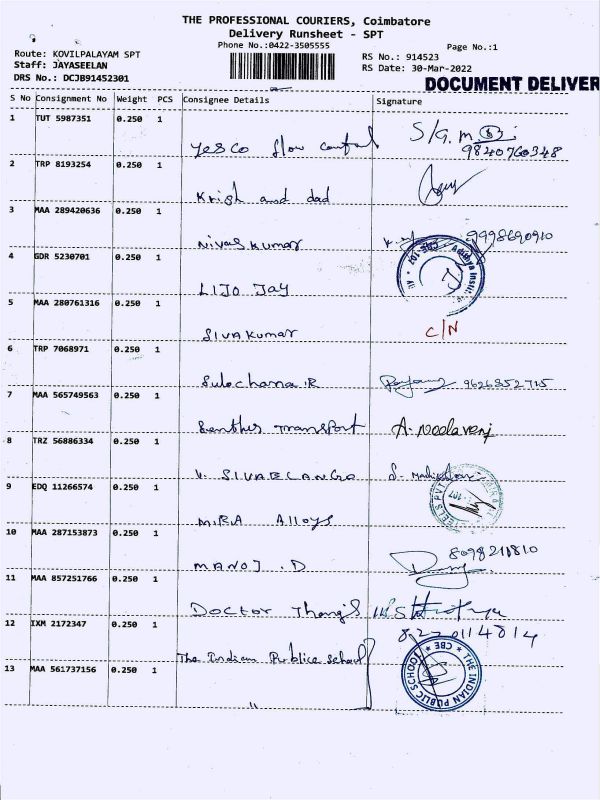 THE PROFESSIONAL COURIERS, Coimbatore
Delivery Runsheet - SPT
Phone No.:0422-3505555
Page No.:1
Route: KOVILPALAYAM SPT
Staff: JAYASEELAN
DRS No.: DCJB91452301
RS No.: 914523
RS Date: 30-Mar-2022
DOCUMENT DELIVER
S No Consignment No Weight PCS Consignee Details Signature
1 TUT 5987351 0.250 1
Yesco flow control S/G. M
9840760348
2 TRP 8193254 0.250 1
Krish and dad
3 MAA 289420636 0.250 1
Nivas Kumar 9998690910
4 GDR 5230701 0.250 1
LIJO JAY
5 MAA 280761316 0.250 1
SIVAKUMAR C/N
6 TRP 7068971 0.250 1
Sulochana.R 9626852715
7 MAA 565749563 0.250 1
Transport A. Neelaveni
8 TRZ 56886334 0.250 1
V. SIVAELANGO
9 EDQ 11266574 0.250 1
MIRA Alloys
10 MAA 287153873 0.250 1
MANOJ . D 8098211810
11 MAA 857251766 0.250 1
Doctor Thangi's
12 IXM 2172347 0.250 1
8220114814
The Indian Publice school
13 MAA 561737156 0.250 1
THE INDIAN PUBLIC SCHOOL * CBE *
"